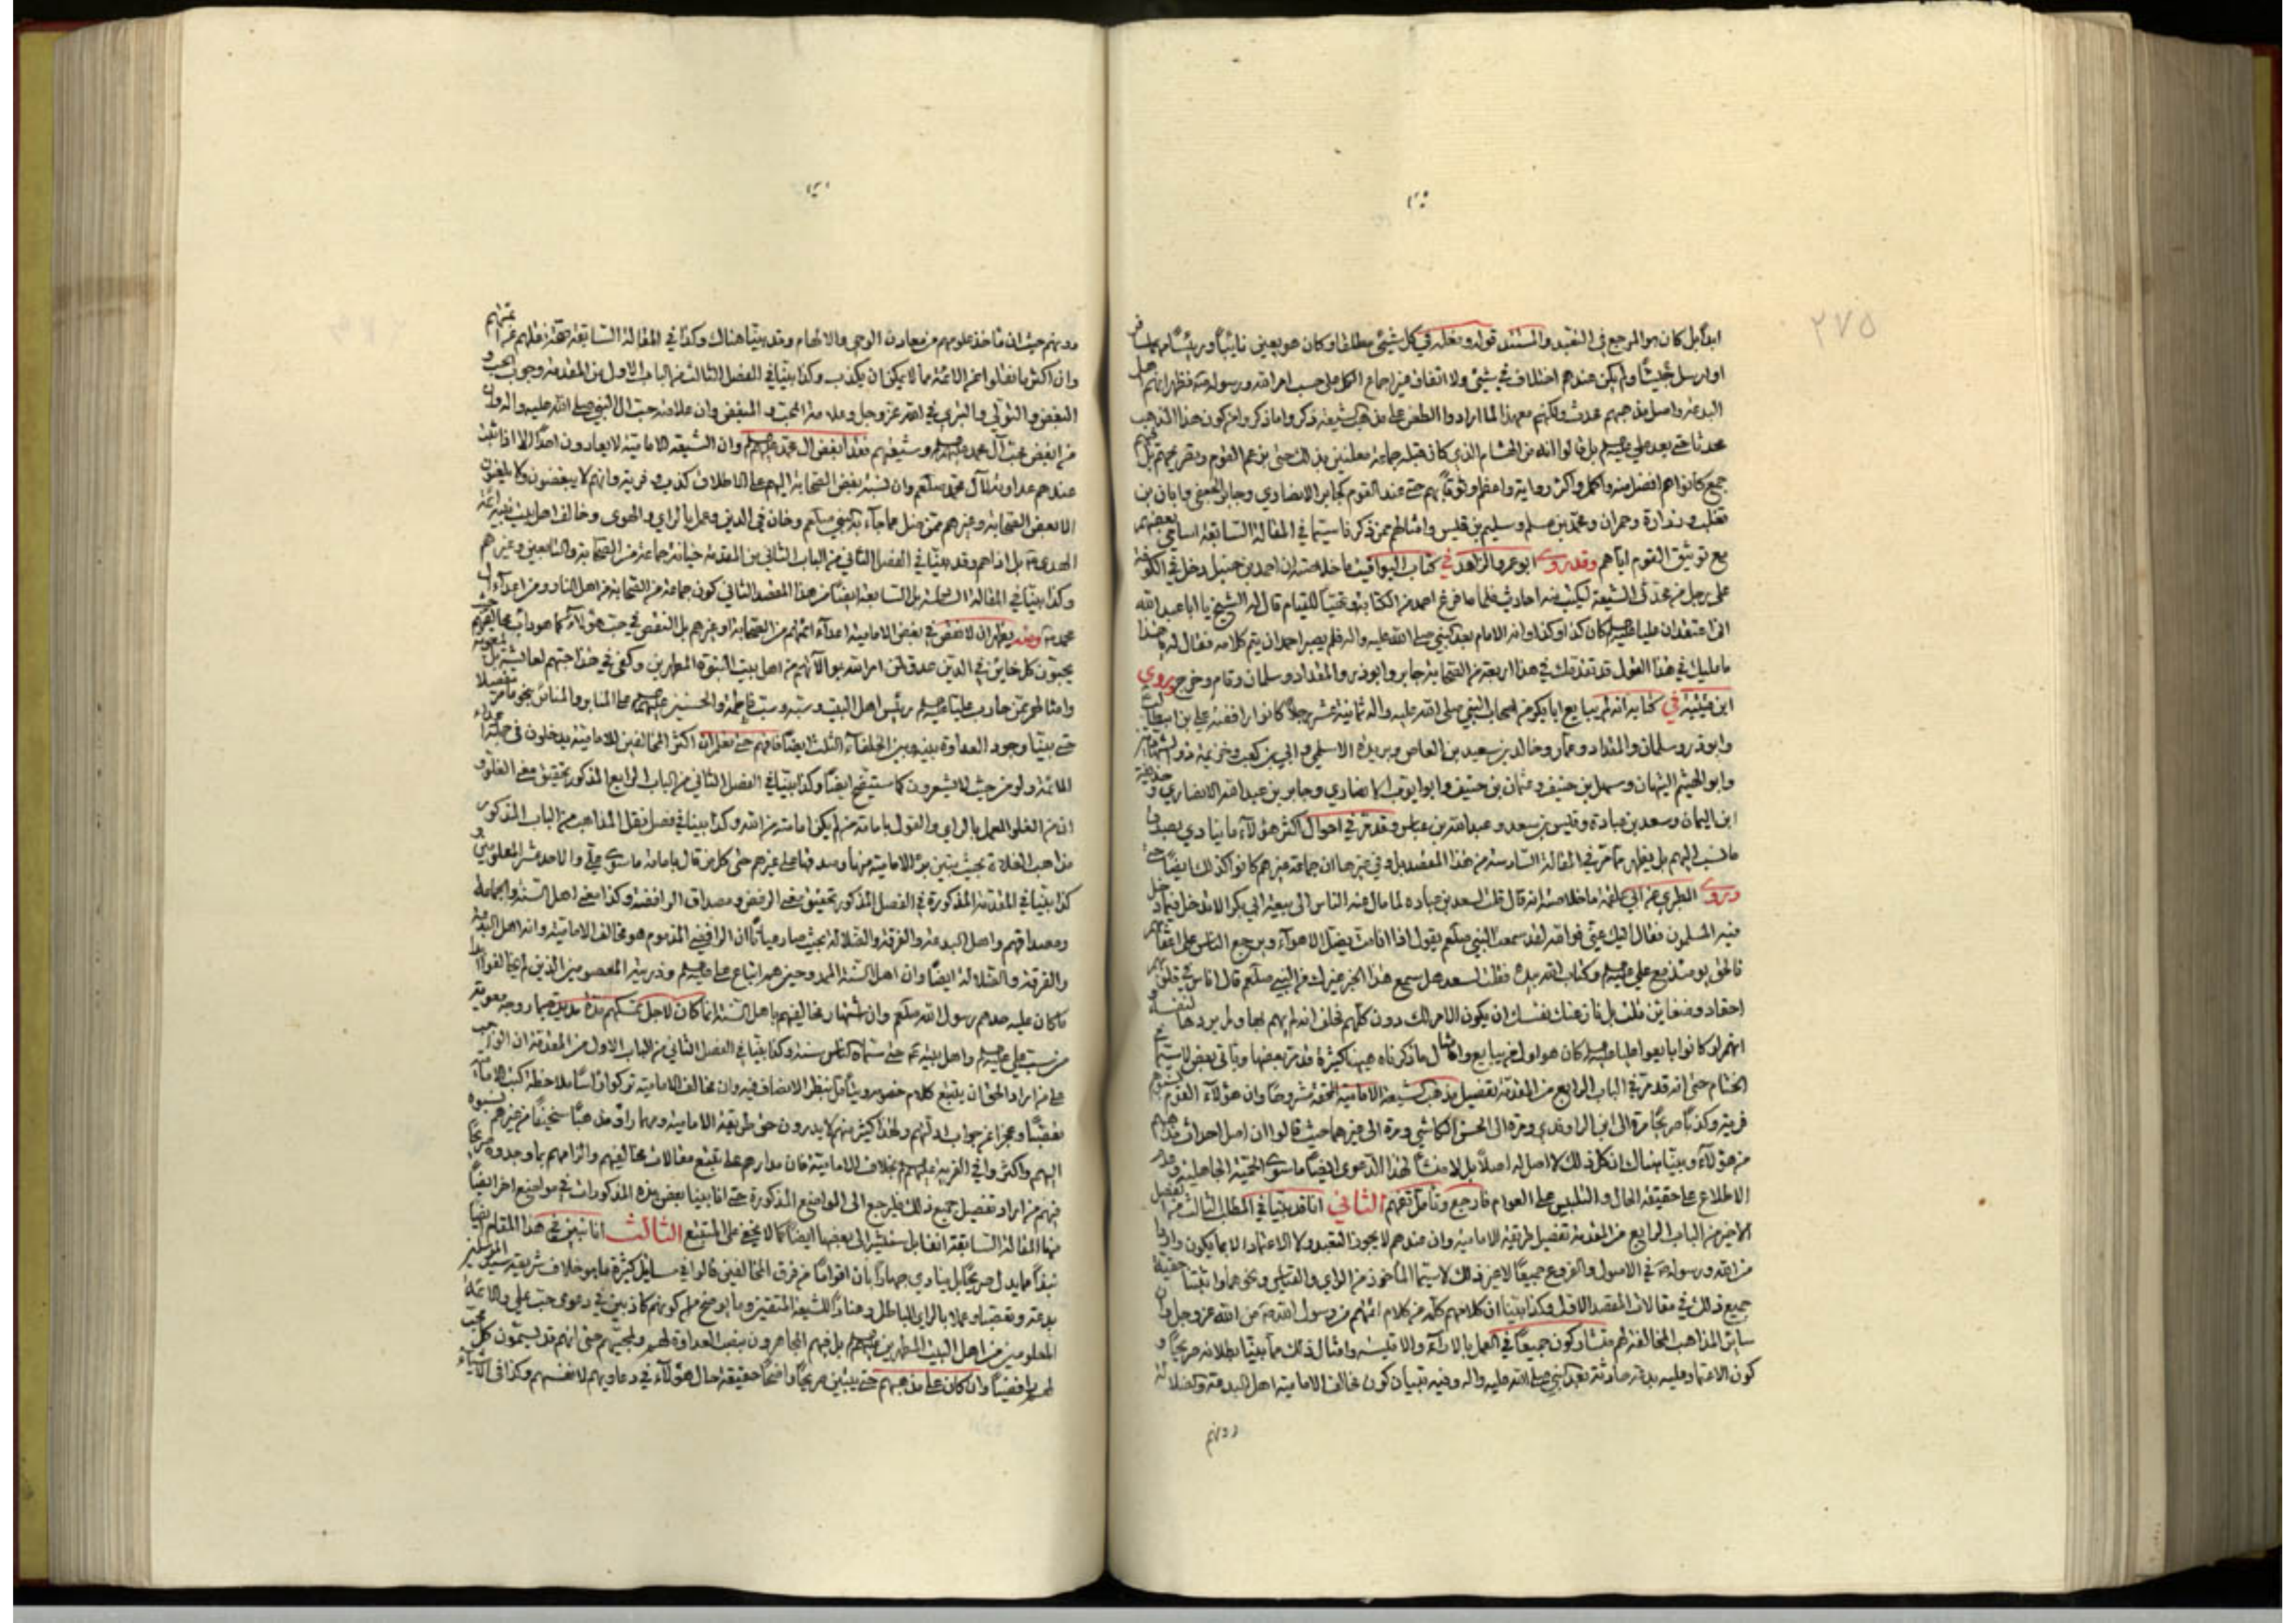 ٢٧٥
ابداً بل كان هو المرجع فى التقييد والمستند قوله وفعله فى كل شيئ مطلقا وكان هو يعين نايبًا ورئيسًا
او ارسل جيشًا ولم يكن عندهم اختلاف فى شئ ولا اتفاق من اجماع الكل على حسب امر الله ورسوله فظهر انهم اهل
البدعة واصل مذهبهم محدث ولكنهم معهذا لما ارادوا الطعن على مذهب الشيعة ذكروا ما ذكروا من كون هذا المذهب
محدثا حتى بعد على بل قالوا انه من هشام الذى كان قبله جماعة معلنين بذلك حتى بزعم القوم وبتصريحهم بل
جمع كانوا هم افضل منه واكمل واكثر رواية واعظم وثوقًا بهم حتى عند القوم كجابر الانصاري وجابر الجعفى وابان بن
تغلب وزرارة وحمران ومحمد بن مسلم وسليم بن قيس وامثالهم ممن ذكرنا سيما فى المقالة السابقة اسامى بعضهم
مع توثيق القوم اياهم وقد روى ابو عمرو الزاهد فى كتاب اليواقيت ما خلاصته ان احمد بن حنبل دخل فى الكوفة
على رجل من محدثى الشيعة ليكتب منه احاديث فلما ما فرغ احمد من الكتابة وتهيّا للقيام قال له الشيخ يا ابا عبد الله
انى اعتقد ان عليا كان كذا وكذا وانه الامام بعد النبى صلى الله عليه واله فلم يصبر احمد ان يتم كلامه فقال له هذا
ما مليك فى هذا القول قد تقدمك فى هذا اربعة من الصحابة جابر وابوذر والمقداد وسلمان وقام وخرج وروى
ابن قتيبة فى كتابه انه لم يبايع ابا بكر من اصحاب النبى صلى الله عليه واله ثمانية عشر رجلاً كانوا رافضة على بن ابيطالب
وابوذر وسلمان والمقداد وعمار وخالد بن سعيد بن العاص وبريدة الاسلمى وابي بن كعب وخزيمة ذو الشهادتين
وابو الهيثم التيهان وسهل بن حنيف وعثمان بن حنيف وابو ايوب الانصاري وجابر بن عبد الله الانصاري وحذيفة
ابن اليمان وسعد بن عبادة وقيس بن سعد وعبد الله بن عباس وقد مرّ فى احوال اكثر هؤلاء ما ينادي بصدق
ما نسب اليهم بل يظهر مما مرّ فى المقالة السادسة من هذا المقصد بل وفى غيرها ان جماعة غيرهم كانوا كذلك ايضًا حتى
وروى الطبري عن ابي علقمه ما خلاصته انه قال قلت لسعد بن عباده لما مال عنه الناس الى بيعة ابي بكر الا تدخل فيما دخل
فيه المسلمون فقال اليك عنى فوالله لقد سمعت النبى صلعم يقول اذا انا مت يضل الاهواء ويرجع الناس على اعقابهم
فالحق يومئذ مع على وكتاب الله بيده فقلت لسعد هل سمع هذا الخبر غيرك من النبى صلعم قال اناس فى قلوبهم
احقاد وضغاين قلت بل نازعتك نفسك ان يكون الامر لك دون كلهم فحلف انه لم يهم بها ولم يردها
انهم لو كانوا بايعوا عليا كان هو اول من يبايع وامثال ما ذكرناه هيهنا كثيرة قد مر بعضها وياتى بعض لاسيما فى
الختام حتى انه قد مرّ فى الباب الرابع من المقدمة تفصيل مذهب الشيعة الامامية المحقة مشروحًا وان هؤلاء القوم
فرية وكذبًا صريحًا مرة الى ابن الراوندي ومرة الى الحسن الكاشي ومرة الى غيرهما حيث قالوا ان اصل احداث
من هؤلاء وبينّا هناك ان كل ذلك لا اصل له اصلاً بل لا منشأ لهذا الدعوى ايضًا ما سوى الحمية الجاهلية
الاطلاع على حقيقة الحال والتلبيس على العوام فارجع وتامل تفهم الثانى انا قد بيّنا فى المطلب الثالث
الاخير من الباب الرابع من المقدمة تفصيل طريقة الامامية وان عندهم لا يجوز التقييد ولا الاعتماد الا بما يكون
من الله ورسوله فى الاصول والفروع جميعًا لا غير ذلك لا سيما الماخوذ من الراي والقياس ونحوهما واثبتنا حقيقة
جميع ذلك فى مقالات المقصد الاول وكذا بيّنا ان كلامهم كله من كلام ائمتهم من رسول الله من الله عز وجل وان
ساير المذاهب المخالفة لهم متشاركون جميعًا فى العمل بالاراء والاقيسة وامثال ذلك مما بيّنا بطلانه صريحًا و
كون الاعتماد عليه بدعة حادثة بعد النبى صلى الله عليه واله وفيه تبيان كون مخالف الامامية اهل البدعة والضلالة
دونهم
دونهم حيث ان ماخذ علومهم من معادن الوحى والالهام وقد بينّا هناك وكذا فى المقالة السابقة صحة نقلهم عن ائمتهم
وان اكثر ما نقلوا عن الائمة مما لا يمكن ان يكذب وكذا بيّنا فى الفصل الثالث من الباب الاول من المقدمة وجوب الحب و
البغض والتولى والتبري فى الله عز وجل وعلامة المحب والمبغض وان علامة حب ال النبى صلى الله عليه واله وان
من ابغض محب آل محمد وشيعتهم فقد ابغض ال محمد وان الشيعة الامامية لا يعادون احدًا الا اذا ثبت
عندهم عداوته لآل محمد صلعم وان نسبة بغض الصحابة اليهم على الاطلاق كذب وفرية وانهم لا يبغضون ولا يلعنون
الا بعض الصحابة وغيرهم ممن بدّل عما جآء به النبى صلعم وخان فى الدين وعمل بالراي والهوى وخالف اهل بيت نبيه ائمة
الهدى بل اذاهم وقد بيّنا فى الفصل الثانى من الباب الثانى من المقدمة خيانة جماعة من الصحابة والتابعين وغيرهم
وكذا بيّنا فى المقالة السابقة ايضًا من هذا المقصد الثانى كون جماعة من الصحابة من اهل النار ومن اعدآء ال
محمد ومنه يظهر ان لا نقص فى بغض الامامية اعدآء ائمتهم من الصحابة او غيرهم بل النقص فى حب هؤلاء كما هو داب مخالفيهم
يحبون كل خاين فى الدين عدو لمن امر الله بموالاتهم من اهل بيت النبوة المطهرين وكفى فى هذا حبهم لعايشة بل معوية
وامثالهم ممن حارب عليًا رئيس اهل البيت وسبه وسب فاطمة والحسنين على المنابر والمناس بنحو ما مر تفصيلا
حتى بيّنا وجود العداوة بينه وبين الخلفآء الثلث ايضًا فافهم حتى تعلم ان اكثر المخالفين للامامية يدخلون فى جملة اعداء
الائمة ولو من حيث لا يشعرون كما ستتضح ايضًا وكذا بيّنا فى الفصل الثانى من الباب الرابع المذكور تحقيق معنى الغلو و
ان من الغلو العمل بالراي والقول بامامة من لم يكن امامته من الله وكذا بينا فى فصل نقل المذاهب من الباب المذكور
مذاهب الغلاة بحيث تبين برؤ الامامية منها وصدقها على غيرهم حتى كل من قال بامامة ما سوى على والاحد عشر المعلومين و
كذا بيّنا فى المقدمة المذكورة فى الفصل المذكور تحقيق معنى الرفض ومصداق الرافضة وكذا معنى اهل السنة والجماعة
ومصداقهم واهل البدعة والفرقة والضلالة بحيث صار عيانًا ان الرافضى المذموم هو مخالف الامامية وانه اهل البدعة
والفرقة والضلالة ايضًا وان اهل السنة الممدوحين هم اتباع على وذريته المعصومين الذين لم يخالفوا
ما كان عليه صدهم رسول الله صلعم وان اشتهار مخالفيهم باهل السنة انما كان لاجل تمسكهم بما روجه معوية
من سب على واهل بيته حتى سماه الناس سنة وكذا بيّنا فى الفصل الثانى من الباب الاول من المقدمة ان الواجب
على من اراد الحق ان يتتبع كلام خصمه وينظر الانصاف فيه وان مخالف الامامية تركوا راسًا ملاحظة كتب الامامية
تعصبًا وعجزًا عن جواب ادلتهم ولهذا كثير منهم لا يدرون حق طريقة الامامية وربما راوا مذهبًا سخيفًا من غيرهم نسبوه
اليهم واكثروا فى الفرية عليهم بخلاف الامامية فان مدارهم على تتبع مقالات مخالفيهم والزامهم بما وجدوه صريحًا
منهم من اراد تفصيل جميع ذلك فليرجع الى المواضع المذكورة حتى انا بينا بعض هذه المذكورات فى مواضع اخر ايضًا
منها المقالة السابقة انفا بل سنشير الى بعضها ايضًا كما لا يخفى على المتتبع الثالث انا نبين فى هذا المقام ايضا
نبذًا مما يدل صريحًا بل ينادي جهارًا بان اقوامًا من فرق المخالفين قالوا فى مسايل كثيرة ما هو خلاف شريعة سيد المرسلين
بدعة وتعصبا وعملا بالراي الباطل وعنادًا للشيعة المتقين وما يوضح لهم كونهم كاذبين فى دعوى حب على والائمة
المعلومين من اهل البيت المطهرين بل فيهم المجاهرون بنصب العداوة لهم ولمحبيهم حتى انهم قد يسمّون كل محب
لهم رافضيًا وان كان على مذهبهم حتى يتبين صريحًا واضحًا حقيقة حال هؤلاء فى دعاويهم لانفسهم وكذا فى الاشياء